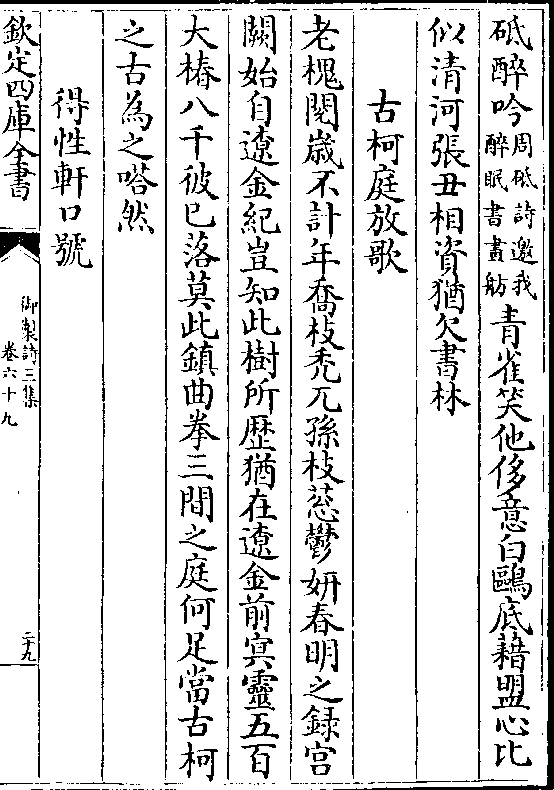 砥醉吟周砥詩邀我醉眠書畫舫青雀笑他侈意白鷗底藉盟心比
似清河張丑相資猶欠書林
古柯庭放歌
老槐閱歳不計年喬枝禿兀孫枝苾鬱妍春明之録宫
闕始自遼金紀豈知此樹所歴猶在遼金前㝠靈五百
大椿八千彼已落莫此鎮曲拳三間之庭何足當古柯
之古為之嗒然
得性軒口號
欽定四庫全書
御製詩三集
卷六十九
二十九